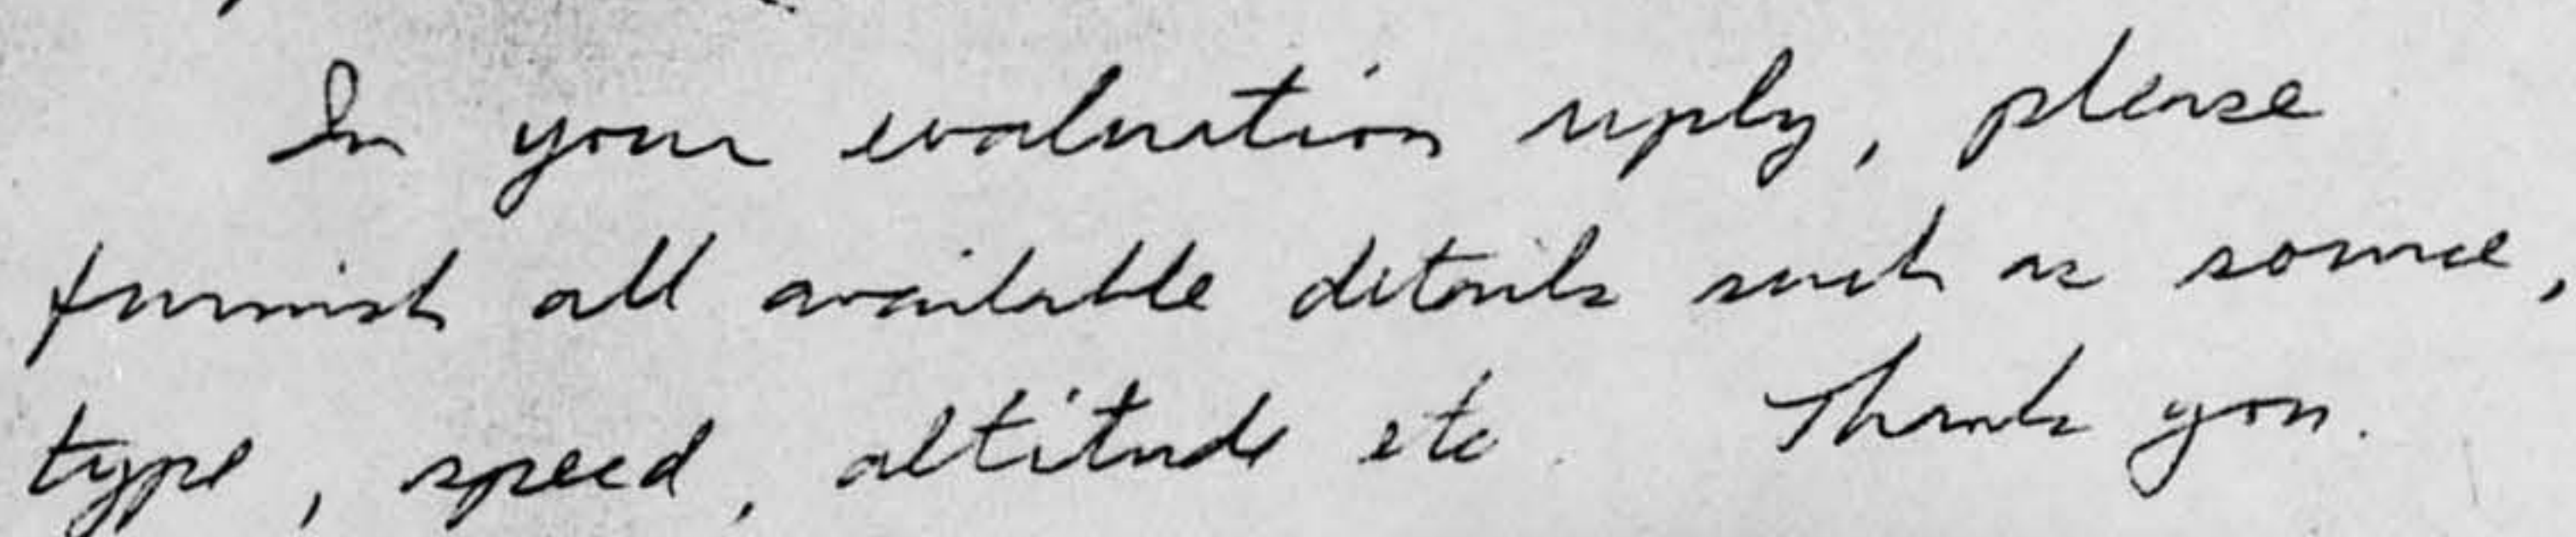 In your evaluation reply, please
furnish all available details such as source,
type, speed, altitude etc. Thank you.